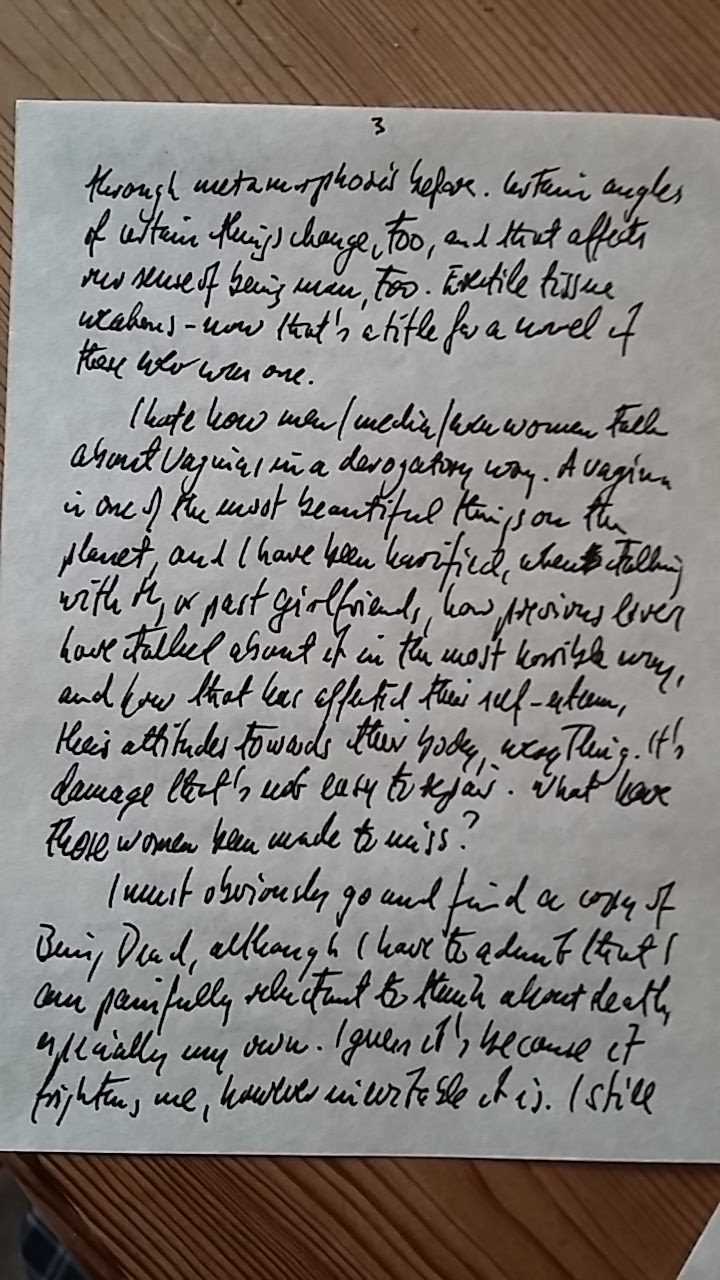 3
through metamorphosis before. Certain angles
of certain things change, too, and that affects
our sense of being man, too. Erectile tissue
weakens - now that's a title for a novel if
there ever was one.
I hate how men/media/even women talk
about vaginas in a derogatory way. A vagina
is one of the most beautiful things on the
planet, and I have been horrified, when talking
with past girlfriends, how previous lovers
have talked about it in the most horrible way,
and how that has affected their self-esteem,
their attitudes towards their body, everything. It's
damage that's not easy to repair. What have
those women been made to miss?
I must obviously go and find a copy of
Being Dead, although I have to admit that I
am painfully reluctant to think about death,
especially my own. I guess it's because it
frightens me, however inevitable it is. I still